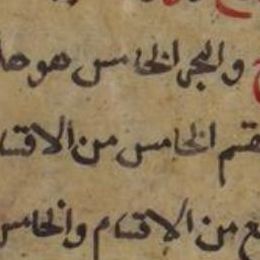 والجز الخامس هو
الخامس من الاقسا
من الاقسام والخامس